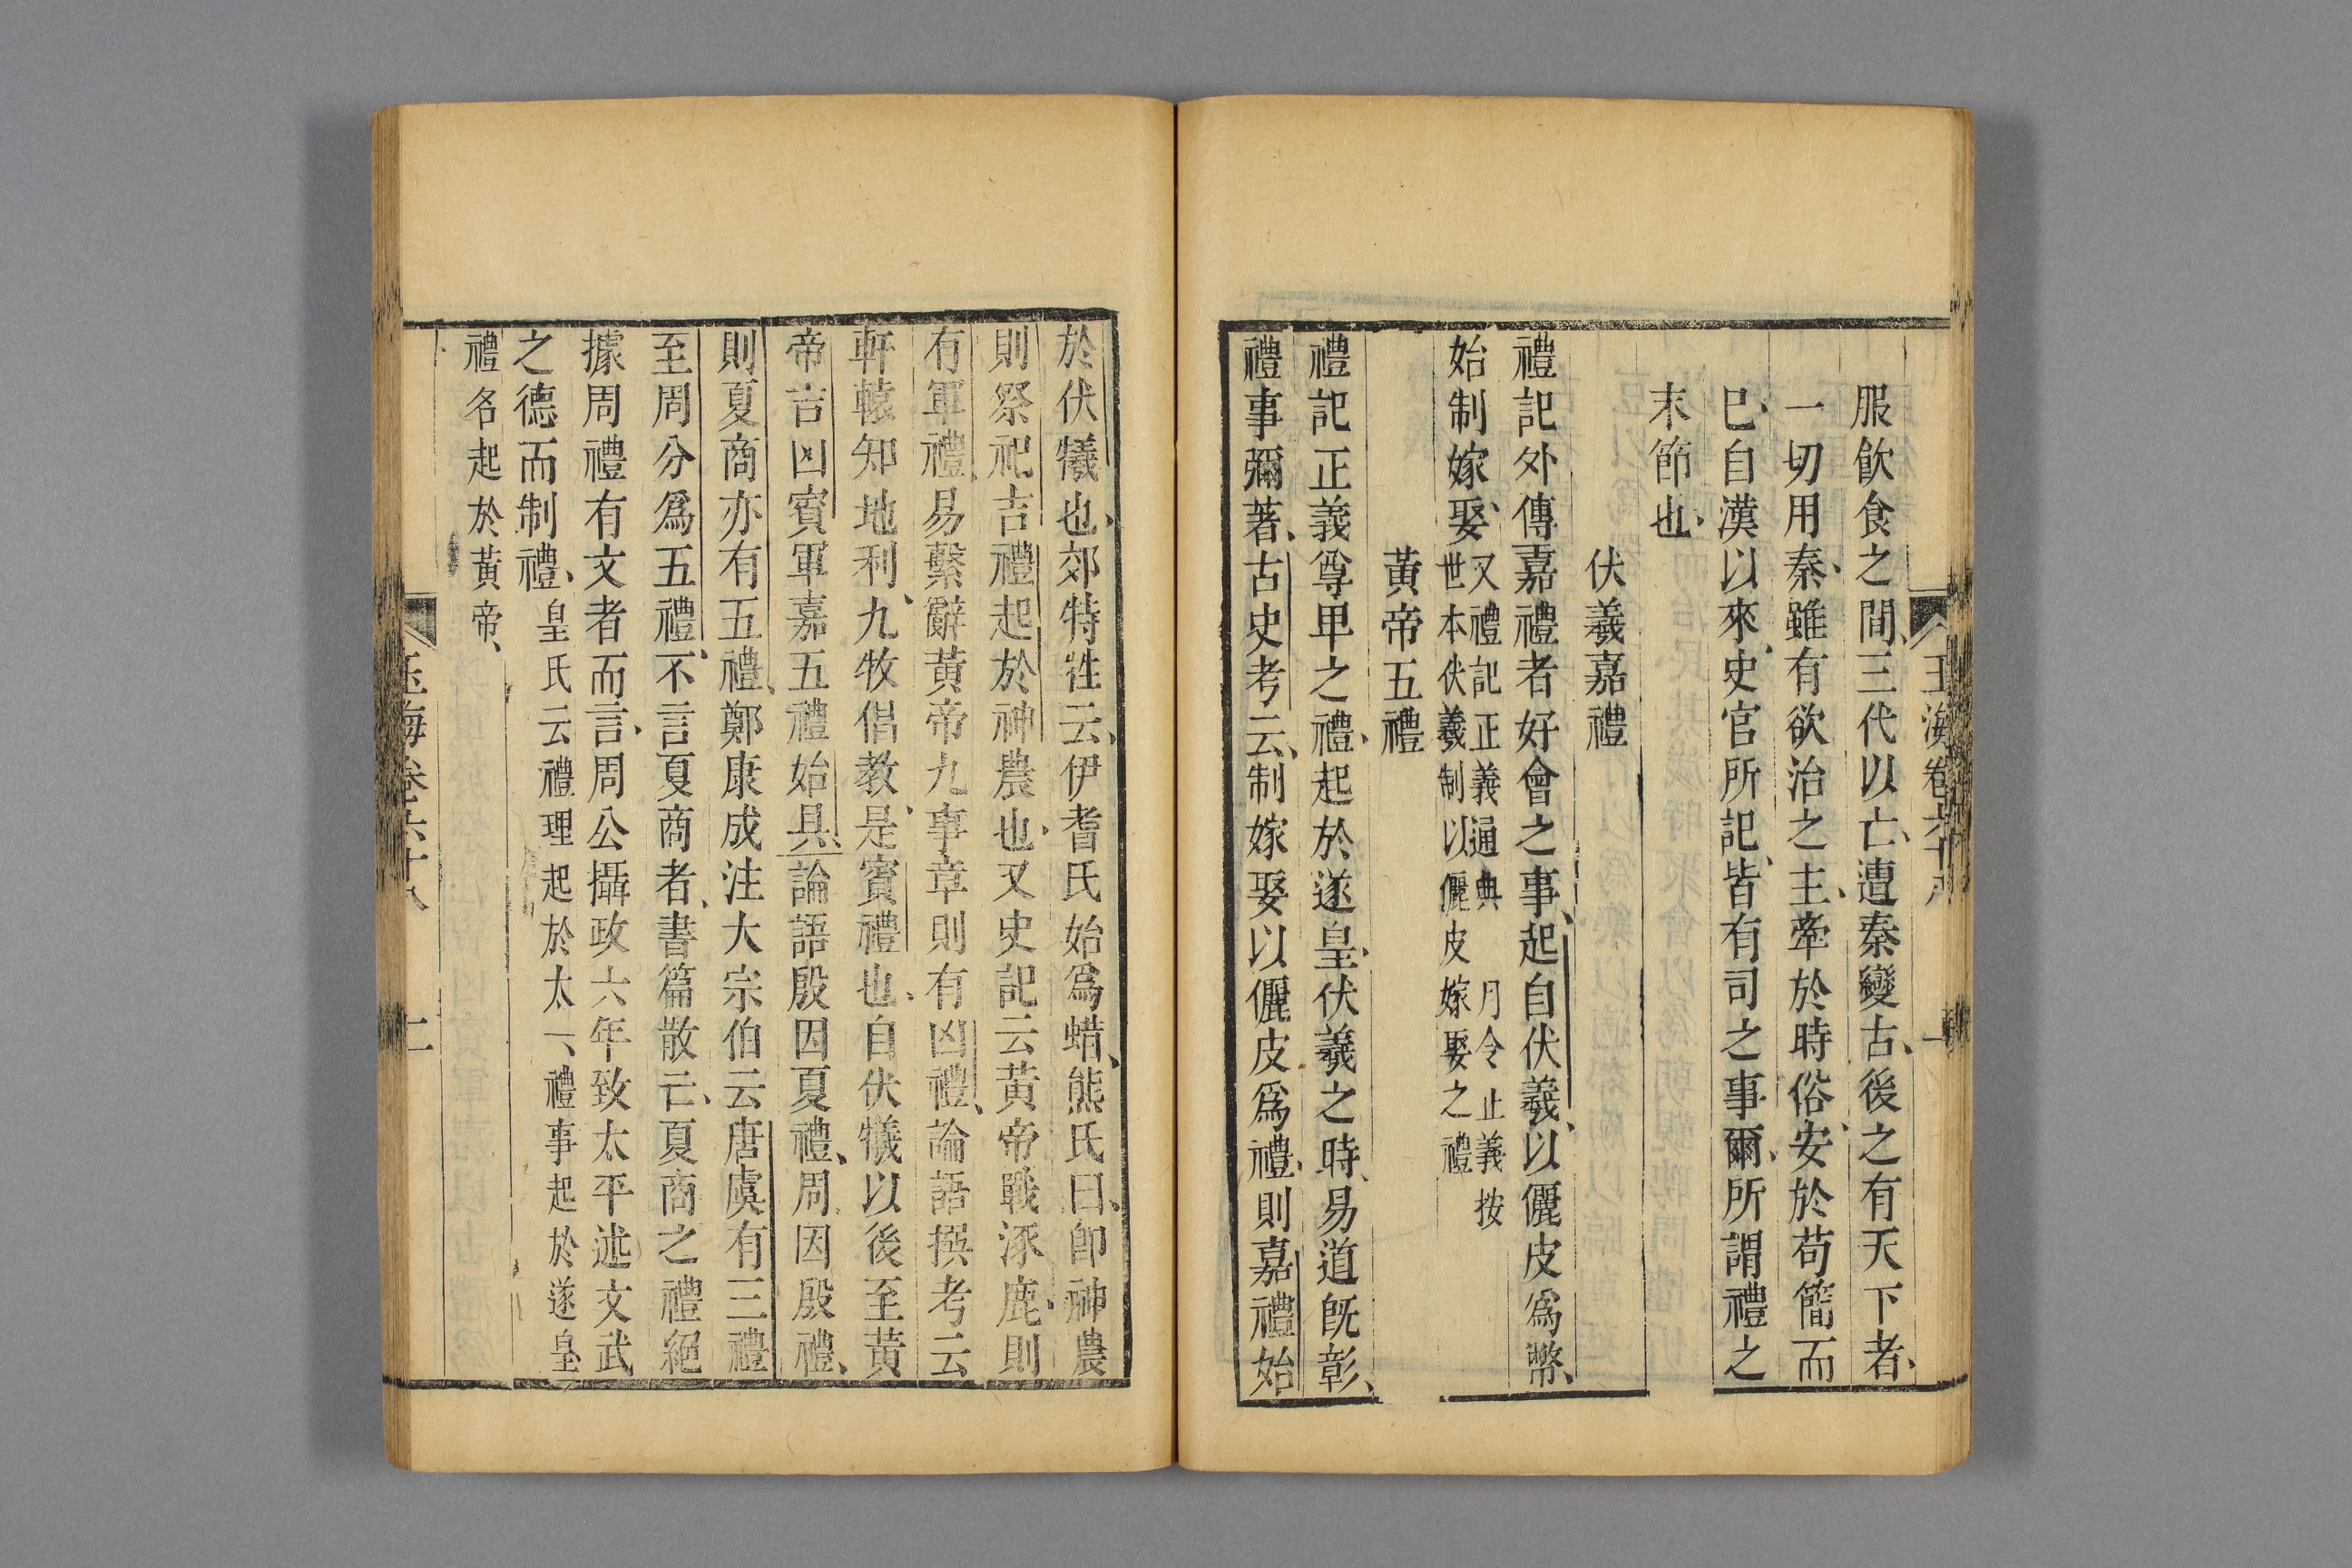 玉海卷六十八 一
服飲食之間、三代以亡、遭秦變古、後之有天下者、
一切用秦、雖有欲治之主、牽於時俗、安於苟簡而
已、自漢以來、史官所記、皆有司之事爾、所謂禮之
末節也、
伏羲嘉禮
禮記外傳嘉禮者好會之事、起自伏羲、以儷皮爲幣、
始制嫁娶、
又禮記正義通典 月令正義 按
世本伏羲制以儷皮嫁娶之禮
黃帝五禮
禮記正義尊卑之禮、起於遂皇、伏羲之時、易道旣彰、
禮事彌著、古史考云、制嫁娶以儷皮爲禮、則嘉禮始
於伏犧也、郊特牲云、伊耆氏始爲蜡、熊氏曰、卽神農
則祭祀吉禮起於神農也、又史記云黃帝戰涿鹿、則
有軍禮、易繫辭黃帝九事章則有凶禮、論語撰考云
軒轅知地利、九牧倡教、是賓禮也、自伏犧以後至黃
帝吉凶賓軍嘉五禮始具、論語殷因夏禮、周因殷禮、
則夏商亦有五禮、鄭康成注大宗伯云唐虞有三禮
至周分爲五禮、不言夏商者、書篇散亡、夏商之禮絕
據周禮有文者而言、周公攝政六年致太平述文武
之德而制禮、
皇氏云禮理起於太一、禮事起於遂皇
禮名起於黃帝、
玉海卷六十八 二